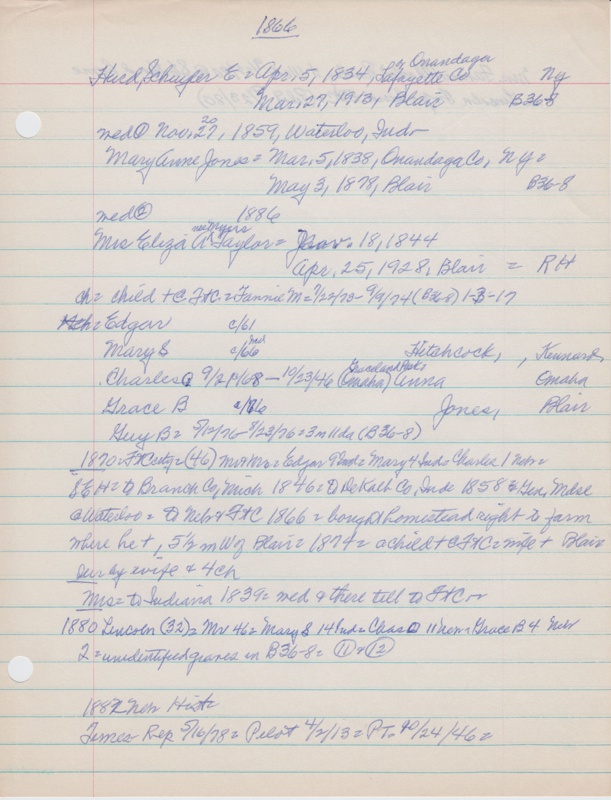 1866
or Onandaga
Hurd, Schuyler E = Apr, 5, 1834, Lafayette Co, Ny
Mar, 27, 1913, Blair B36-8
20
med ① Nov, 27, 1859, Waterloo, Ind
Mary Anne Jones = Mar, 5, 1838, Onandaga Co, Ny =
May 3, 1878, Blair B36-8
med ② 1886
nee Myers
Mrs Eliza A Taylor = Nov. 18, 1844
Apr, 25, 1928, Blair = RH
ch = child + C Ft C = Fannie M = 7/22/73 - 9/9/74 (B36-8) 1-3-17
ch = Edgar c/61
Mary S c/66 Ind Hitchcock, , Kennard,
Charles O 9/2/1868 - 10/23/46 (Omaha) Anna Omaha
Grace B c/76 Jones, Blair
Guy B = 5/12/76 - 8/23/76 = 3m 11da (B36-8)
1870 = Ft C city = (46) Mr & Mrs = Edgar 9 Ind = Mary 4 Ind Charles 1 Neb =
S E H = to Branch Co, Mich 1846 = to DeKalb Co, Ind 1858 & Gen, Mdse
@ Waterloo = to Neb & Ft C 1866 = bought homestead right to farm
where he +, 5½ m W of Blair = 1874 = a child + C Ft C = wife + Blair
Sur by wife & 4 ch
Mrs = to Indiana 1839 = med @ there tell to Ft C
1880 Lincoln (32) = Mr 46 = Mary S 14 Ind = Chas O 11 Neb = Grace B 4 Nebr
2 = unidentified graves in B36-8 = ⑪ & ⑫
1882 Neb Hist =
Times Rep 5/16/78 = Pilot 4/2/13 = PT = 10/24/46 =